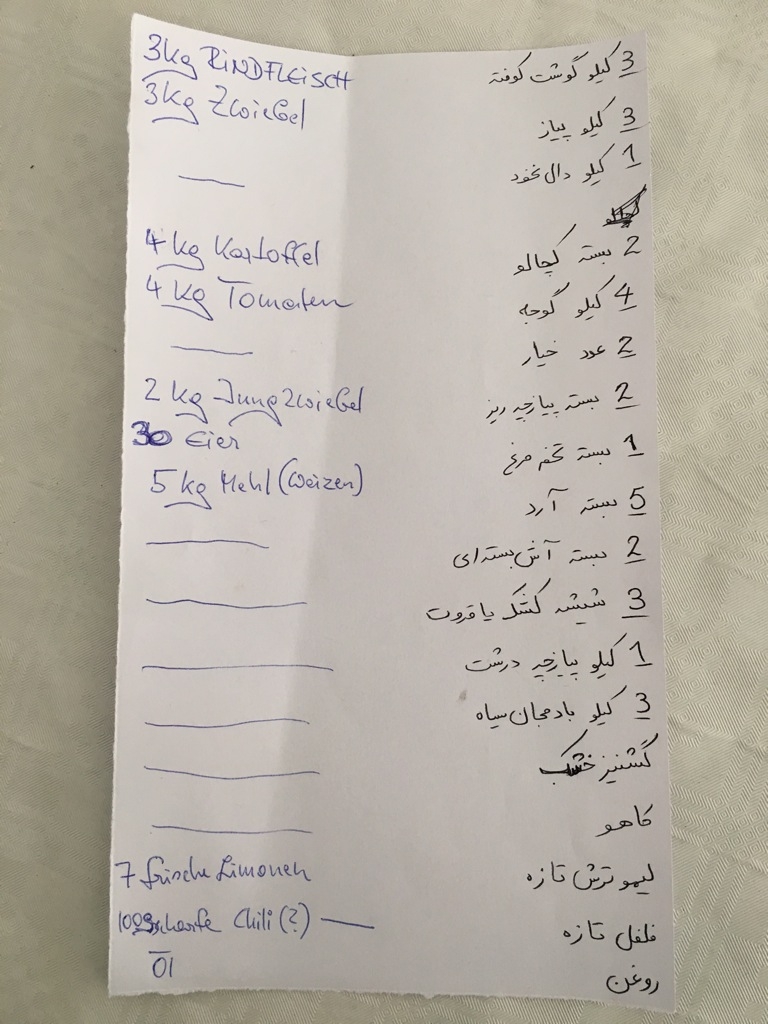 3kg RINDFLEISCH 3 کیلو گوشت کوفته
3kg Zwiebel 3 کیلو پیاز
1 کیلو دال نخود
4 kg Kartoffel 2 بسته کچالو
4 kg Tomaten 4 کیلو گوجه
2 عدد خیار
2 kg Jungzwiebel 2 بسته پیازچه ریز
30 Eier 1 بسته تخم مرغ
5 kg Mehl (Weizen) 5 بسته آرد
2 بسته آش بسته ای
3 شیشه کشک یا قروت
1 کیلو پیازچه درشت
3 کیلو بادمجان سیاه
گشنیز خشک
کاهو
7 frische Limonen لیمو ترش تازه
100g scharfe Chili (?) فلفل تازه
Öl روغن